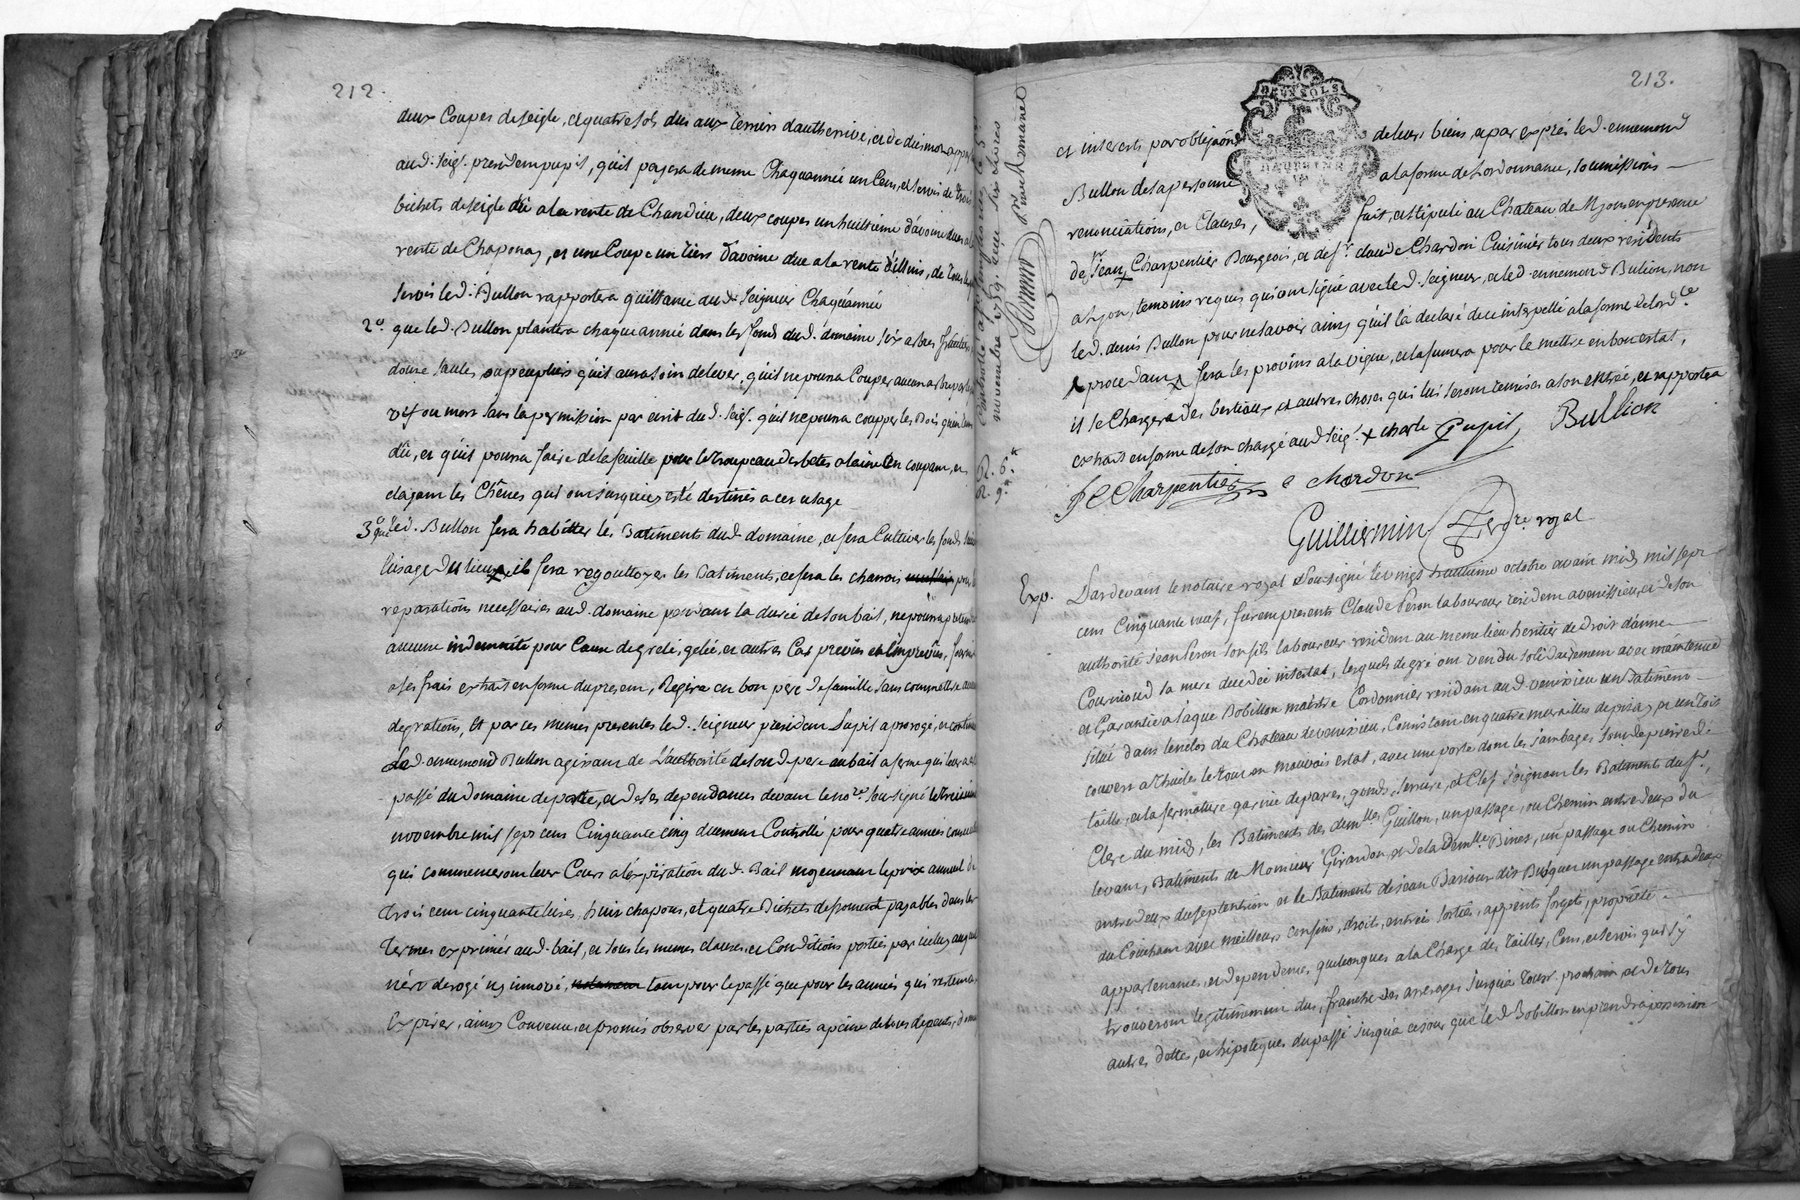 212.
deux Coupes de seigle, et quatre sols dus aux terriers d'autherrive, et de dimon apparte
aud. seig.r president pupil, qu'il payera de meme Chaque année un Cens, et servis de trois
bichets de seigle dû a la rente de Chandieu, deux coupes un huitieme d'avoine dues a la
rente de Chaponay, et une Coupe un tiers d'avoine due a la rente d'illins, de tous les
servis led. Bullion rapportera quittance aud. Seigneur Chaqu'année
2.o que led. Bullion plantera chaque année dans les fonds dud. domaine six arbres fruitiers
douze saules, ou peupliers qu'il aura soin de lever, qu'il ne pourra Couper aucun arbre par le pied
vif ou mort sans la permission par ecrit dud. seig.r qu'il ne pourra coupper les bois qu'en tems
dû, et qu'il pourra faire de la feuille pour le troupeau des betes a laine en coupant, et
elagant les Chênes qui ont jusques esté destinés a cet usage
3.o que led. Bullion fera habitter les Batiments dud. domaine, et fera Cultiver les fonds suivant
l'usage des lieux, il fera regouttoyer les Batiments, et fera les charrois pour les
reparations necessaires aud. domaine pendant la durée de son bail, ne pourra pretendre
aucune indemnité pour Cause de grele, gelée, et autres Cas prevûs et imprevûs, fournira
a ses frais extrait en forme du present, Regira en bon pere de famille sans commettre aucune
degrations, Et par ces memes presentes led. Seigneur president Pupil a prorogé, et continué
aud. ennemond Bullion agissant de L'authorité de son d. pere au bail a ferme qu'il leur a été
passé du domaine de porte, et de ses dependances devant le no.re sous signé le treizieme
novembre mil sept cens Cinquante cinq duement Controllé pour quatre années consecutives
qui commenceront leur Cours a l'expiration dud. Bail moyennant le prix annuel de
trois cent cinquante livres, huit chapons, et quatre Bichets de froment payables dans les
termes exprimés aud. bail, et sous les memes clauses, et Conditions portées par icelluy auquel
n'est derogé ny innové, tant pour le passé que pour les années qui restent a
Expirer, ainsy Convenu, et promis observer par les parties a peine de tous depents, dommages
213.
DEUX SOLS
DAUPHINE
et interests par obligations de leurs biens, et par exprés led. ennemond
Bullion de sa personne a la forme de Lordonnance, soumissions
renonciations, et Clauses, fait, et stipulé au Chateau de Myons en presence
de s.r Jean Charpentier Bourgeois, et de s.r claude Chardon Cuisinier tous deux residents
a Lyon, temoins requis qui ont signé avec led. Seigneur, et led. ennemond Bullion, non
led. denis Bullion pour ne savoir ainsy qu'il l'a declaré de ce interpellé a la forme de lord.ce
procedant fera les provins a la vigne, et la fumera pour le mettre en bon estat,
il se Chargera des bestiaux et autres choses qui lui seront remises a son entrée, et rapportera
extrait en forme de son chargé aud. seig.r
charle Pupil
Bullion
J C Charpentier
C chardon
Guilliermin no.re royal
Exp. Pardevant le notaire royal sous signé le vingt huitieme octobre avant midy mil sept
cens Cinquante neuf, furent presents Claude Peron laboureur resident a venissieux, et de son
authorité Jean Peron son fils laboureur resident au meme lieu heritier de droit d'anne
Cournioud sa mere decedée intestat, lesquels de gré ont vendu solidairement avec maintenue
et Garantie a Jaque Bobillon maistre Cordonnier resident aud. venissieu un Batiment
situé dans l'enclos du Chateau de venissieu, Consistant en quatre murailles de pizay, et un toit
couvert a thuiles le tout en mauvais estat, avec une porte dont les jambages sont de pierre de
taille, et la fermature garnie de pares, gonds, serrure, et Clef joignant les Batiments du s.r
Clerc du midy, les Batiments des dem.lles Guillon, un passage, ou Chemin entre deux du
levant, Batiments de Monsieur Girardon, et de la Dem.lle Binet, un passage ou Chemin
entre deux du septentrion et le Batiment de jean Barioud dit Busquet un passage entre deux
du Couchant avec meilleurs confins, droits, entrées sorties, appents forgets, proprieté
appartenances, et dependences quelconques a la Charge des tailles, Cens, et servis qui s'y
trouveront legitimement dus, franche des arerages jusqu'a touss.t prochain et de tous
autres dettes, et hipoteques du passé jusqu'a ce jour que led. Bobillon en prendra possession